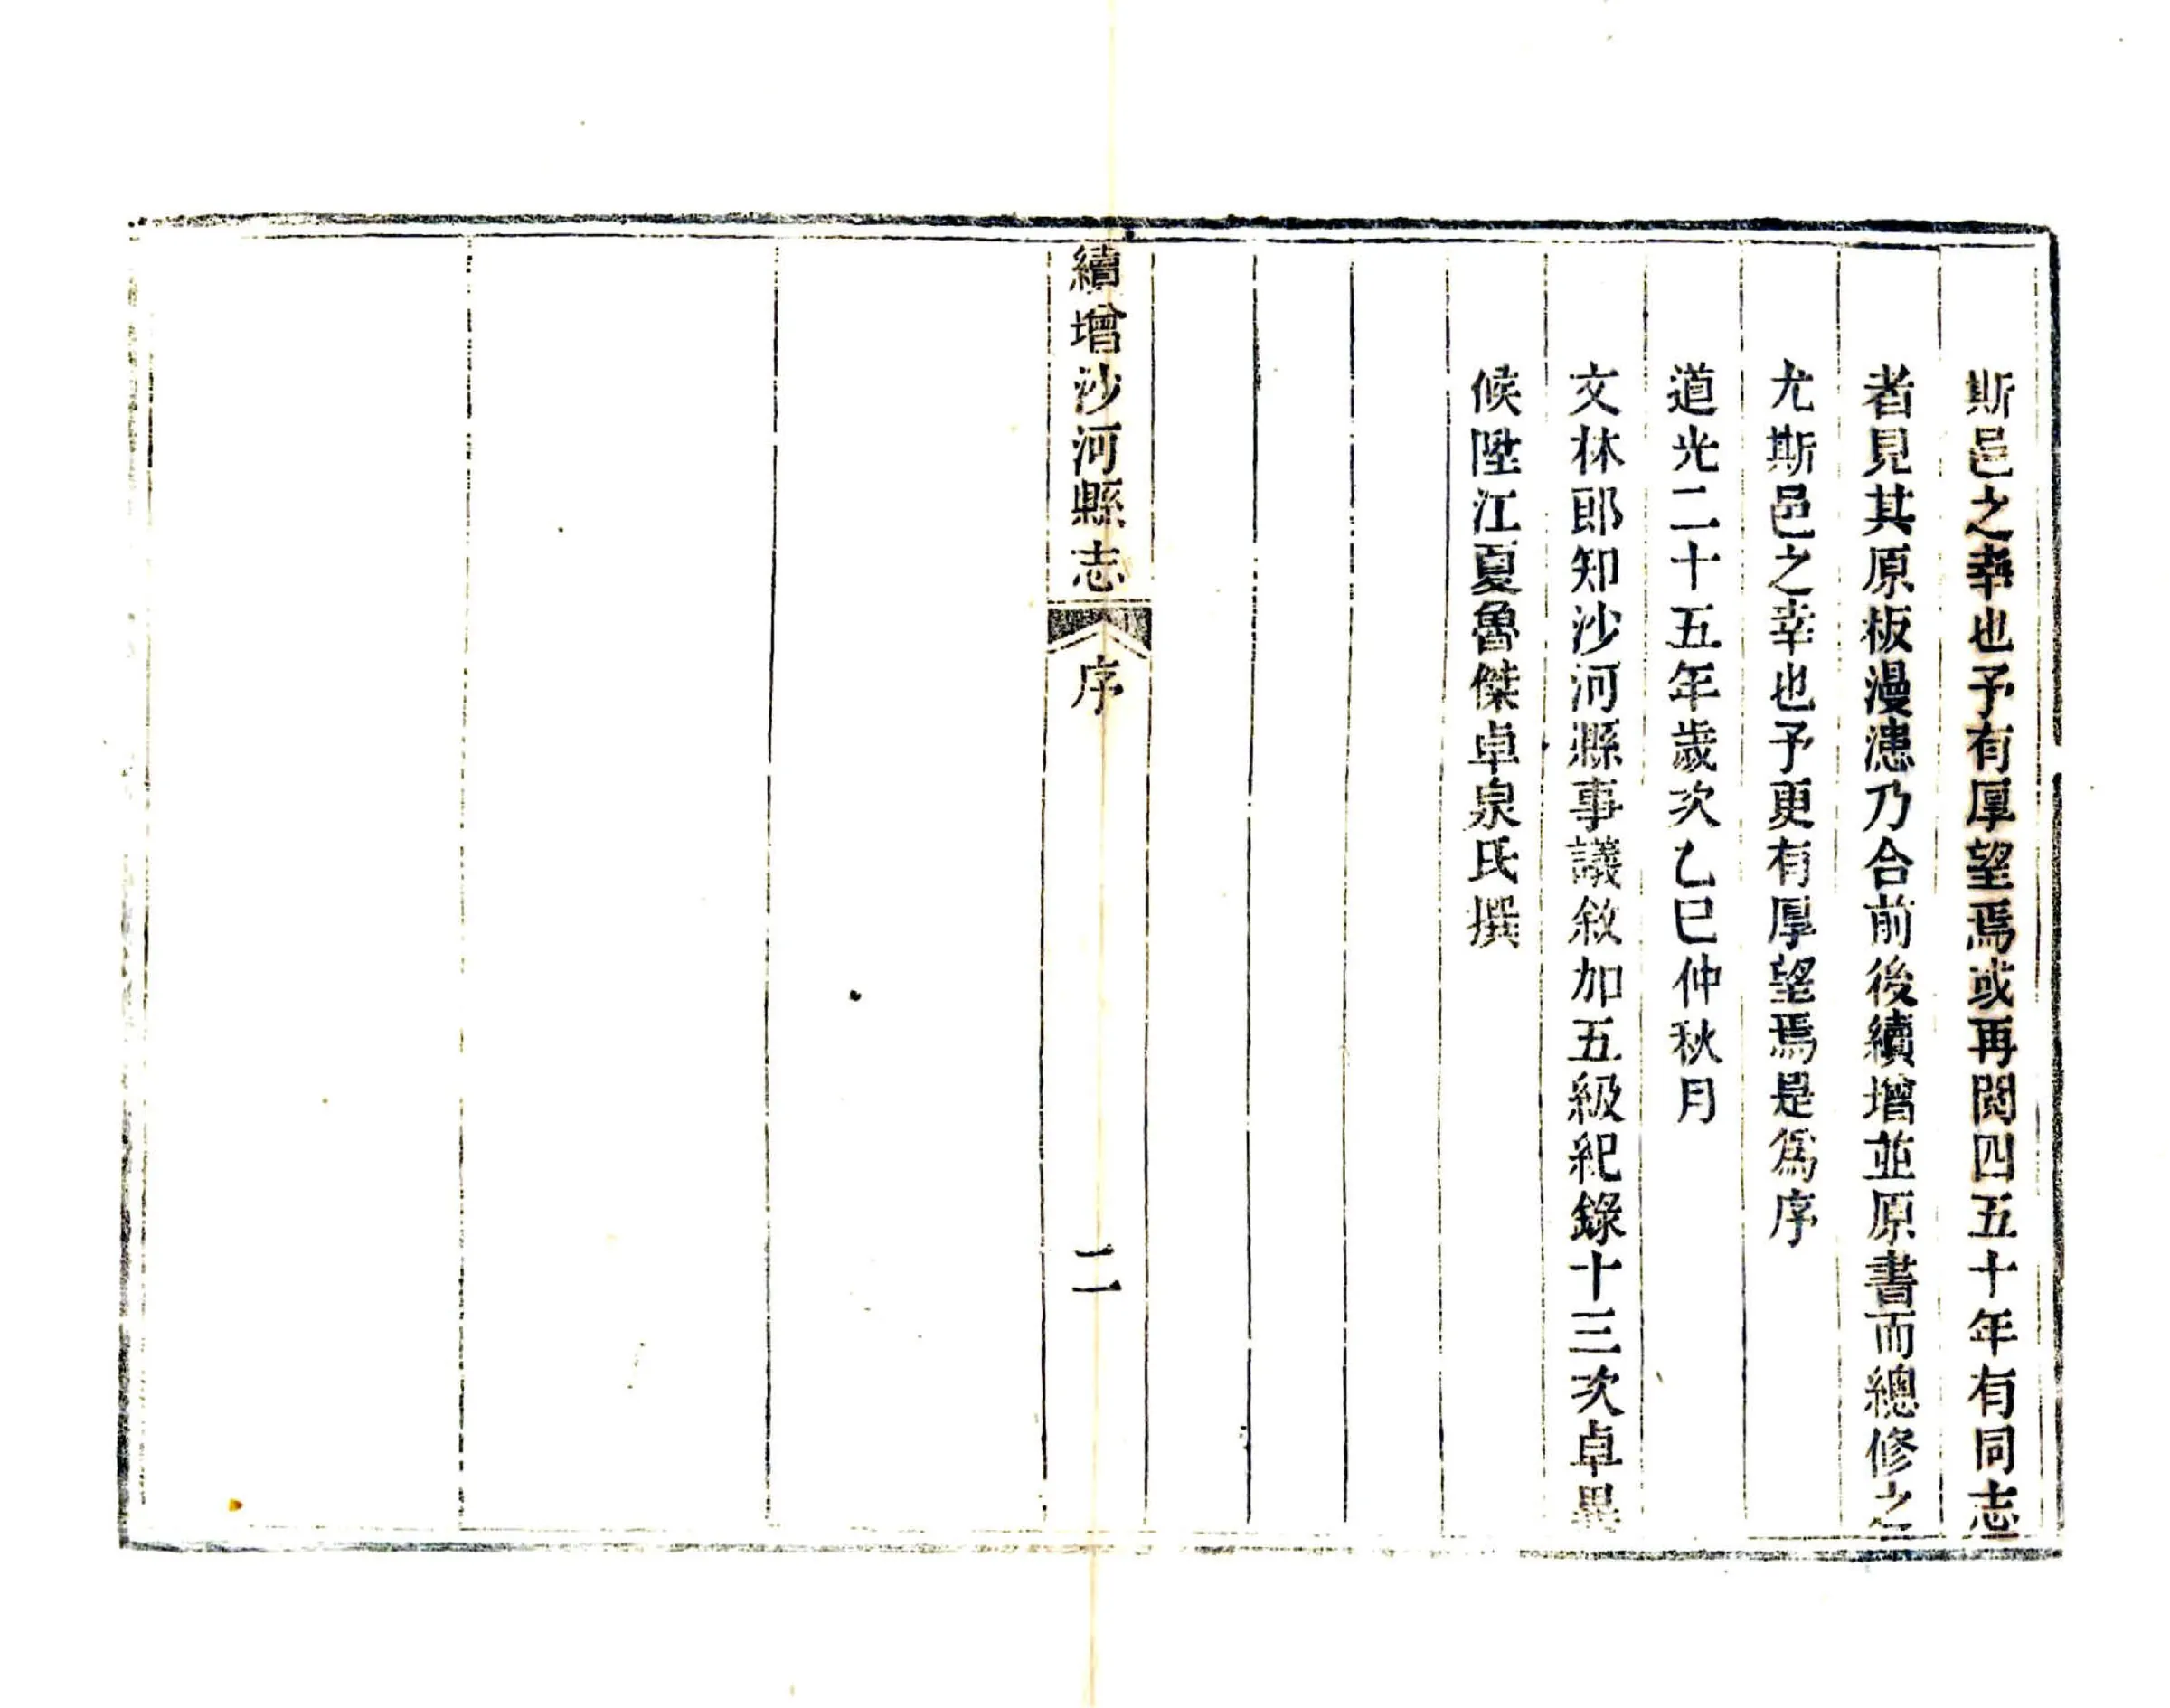 斯邑之幸也予有厚望焉或再閱四五十年有同志
者見其原板漫漶乃合前後續增並原書而總修之
尤斯邑之幸也予更有厚望焉是為序
道光二十五年歲次乙巳仲秋月
文林郎知沙河縣事議敘加五級紀錄十三次卓異
候陞江夏魯傑卓泉氏撰
續增沙河縣志
序
二